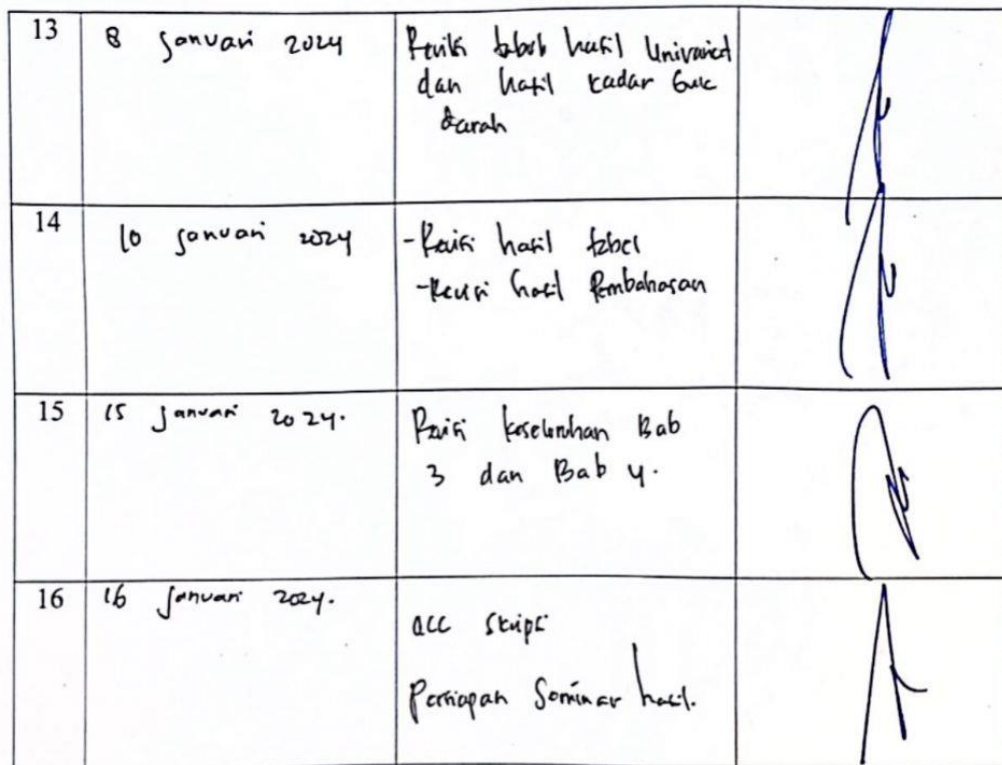 13
8 Januari 2024
Revisi tabel hasil Univariat
dan hasil kadar Gula
darah
14
10 Januari 2024
-Revisi hasil tabel
-Revisi hasil Pembahasan
15
15 Januari 2024.
Revisi keseluruhan Bab
3 dan Bab 4.
16
16 Januari 2024.
acc skripsi
Persiapan Seminar hasil.